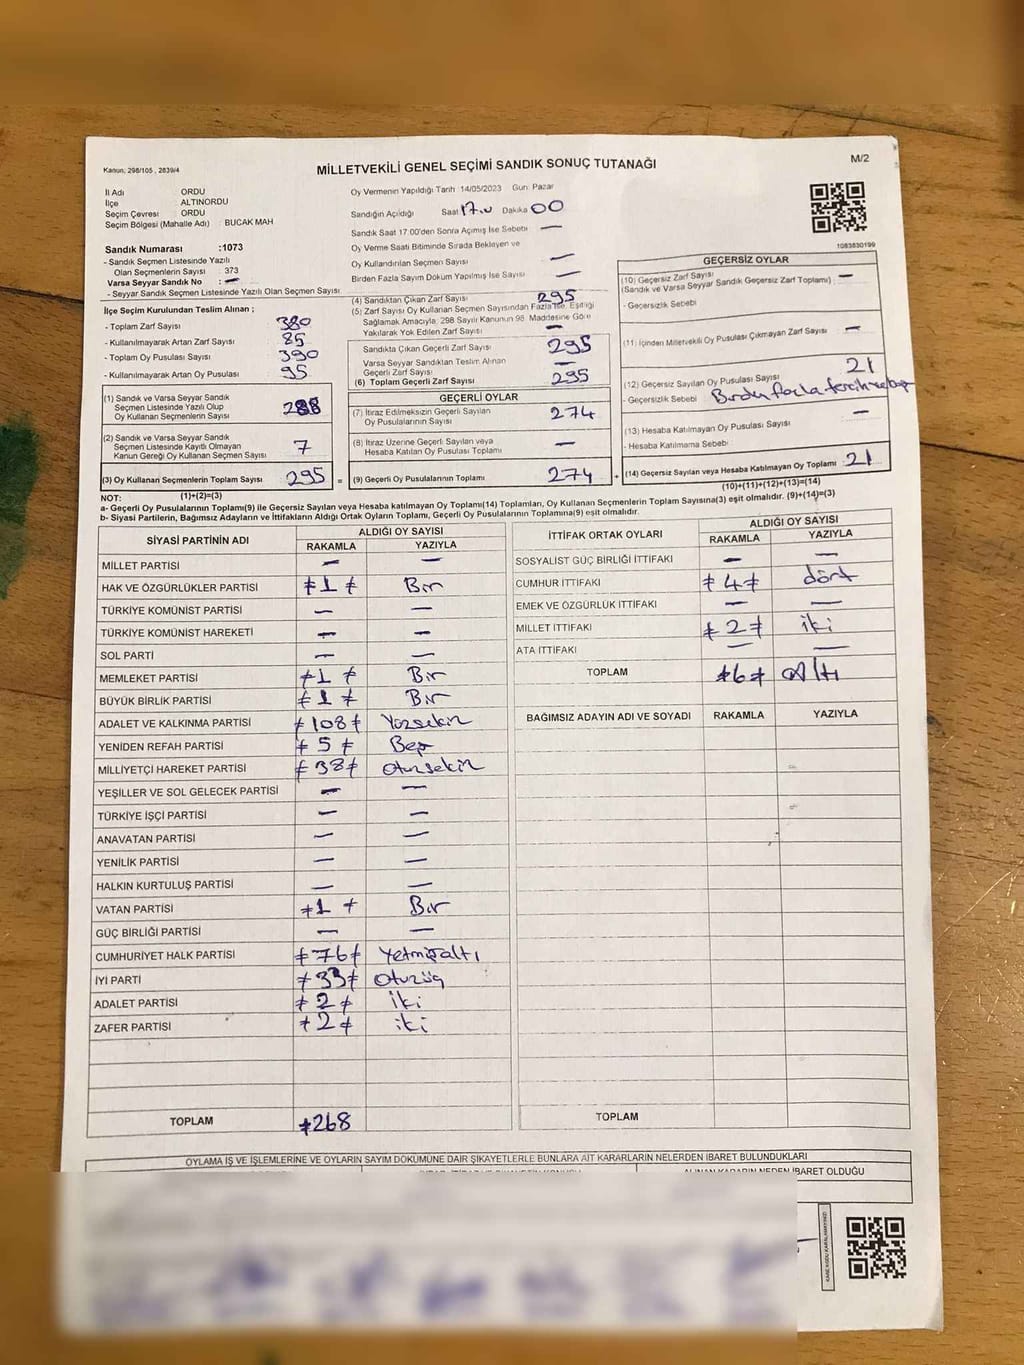 Kanun; 298/105 , 2839/4
MİLLETVEKİLİ GENEL SEÇİMİ SANDIK SONUÇ TUTANAĞI
M/2
İl Adı ORDU
İlçe ALTINORDU
Seçim Çevresi ORDU
Seçim Bölgesi (Mahalle Adı) : BUCAK MAH
Sandık Numarası :1073
- Sandık Seçmen Listesinde Yazılı
Olan Seçmenlerin Sayısı : 373
Varsa Seyyar Sandık No : —
- Seyyar Sandık Seçmen Listesinde Yazılı Olan Seçmen Sayısı
İlçe Seçim Kurulundan Teslim Alınan ;
- Toplam Zarf Sayısı 380
- Kullanılmayarak Artan Zarf Sayısı 85
- Toplam Oy Pusulası Sayısı 390
- Kullanılmayarak Artan Oy Pusulası 95
(1) Sandık ve Varsa Seyyar Sandık
Seçmen Listesinde Yazılı Olup
Oy Kullanan Seçmenlerin Sayısı 288
(2) Sandık ve Varsa Seyyar Sandık
Seçmen Listesinde Kayıtlı Olmayan
Kanun Gereği Oy Kullanan Seçmen Sayısı 7
(3) Oy Kullanan Seçmenlerin Toplam Sayısı 295 =
(1)+(2)=(3)
Oy Vermenin Yapıldığı Tarih 14/05/2023 Gün: Pazar
Sandığın Açıldığı Saat 17.00 Dakika 00
Sandık Saat 17.00'den Sonra Açımış İse Sebebi —
Oy Verme Saati Bitiminde Sırada Bekleyen ve
Oy Kullandırılan Seçmen Sayısı —
Birden Fazla Sayım Döküm Yapılmış İse Sayısı —
(4) Sandıktan Çıkan Zarf Sayısı 295
(5) Zarf Sayısı Oy Kullanan Seçmen Sayısından Fazla İse, Eşitliği
Sağlamak Amacıyla, 298 Sayılı Kanunun 98. Maddesine Göre
Yakılarak Yok Edilen Zarf Sayısı —
Sandıkta Çıkan Geçerli Zarf Sayısı 295
Varsa Seyyar Sandıktan Teslim Alınan
Geçerli Zarf Sayısı —
(6) Toplam Geçerli Zarf Sayısı 295
GEÇERLİ OYLAR
(7) İtiraz Edilmeksizin Geçerli Sayılan
Oy Pusulalarının Sayısı 274
(8) İtiraz Üzerine Geçerli Sayılan veya
Hesaba Katılan Oy Pusulası Toplamı —
(9) Geçerli Oy Pusulalarının Toplamı 274 +
1083830199
GEÇERSİZ OYLAR
(10) Geçersiz Zarf Sayısı —
(Sandık ve Varsa Seyyar Sandık Geçersiz Zarf Toplamı)
- Geçersizlik Sebebi
(11) İçinden Milletvekili Oy Pusulası Çıkmayan Zarf Sayısı —
(12) Geçersiz Sayılan Oy Pusulası Sayısı 21
- Geçersizlik Sebebi Birden fazla tercih sebep
(13) Hesaba Katılmayan Oy Pusulası Sayısı —
- Hesaba Katılmama Sebebi
(14) Geçersiz Sayılan veya Hesaba Katılmayan Oy Toplamı 21
(10)+(11)+(12)+(13)=(14)
NOT:
a- Geçerli Oy Pusulalarının Toplamı(9) ile Geçersiz Sayılan veya Hesaba katılmayan Oy Toplamı(14) Toplamları, Oy Kullanan Seçmenlerin Toplam Sayısına(3) eşit olmalıdır. (9)+(14)=(3)
b- Siyasi Partilerin, Bağımsız Adayların ve İttifakların Aldığı Oyların Toplamı, Geçerli Oy Pusulalarının Toplamına(9) eşit olmalıdır.
SİYASİ PARTİNİN ADI ALDIĞI OY SAYISI
RAKAMLA YAZIYLA
MİLLET PARTİSİ — —
HAK VE ÖZGÜRLÜKLER PARTİSİ ≠1≠ Bir
TÜRKİYE KOMÜNİST PARTİSİ — —
TÜRKİYE KOMÜNİST HAREKETİ — —
SOL PARTİ — —
MEMLEKET PARTİSİ ≠1≠ Bir
BÜYÜK BİRLİK PARTİSİ ≠1≠ Bir
ADALET VE KALKINMA PARTİSİ ≠108≠ Yüzsekiz
YENİDEN REFAH PARTİSİ ≠5≠ Beş
MİLLİYETÇİ HAREKET PARTİSİ ≠38≠ Otuzsekiz
YEŞİLLER VE SOL GELECEK PARTİSİ — —
TÜRKİYE İŞÇİ PARTİSİ — —
ANAVATAN PARTİSİ — —
YENİLİK PARTİSİ — —
HALKIN KURTULUŞ PARTİSİ — —
VATAN PARTİSİ ≠1≠ Bir
GÜÇ BİRLİĞİ PARTİSİ — —
CUMHURİYET HALK PARTİSİ ≠76≠ Yetmişaltı
İYİ PARTİ ≠33≠ Otuzüç
ADALET PARTİSİ ≠2≠ iki
ZAFER PARTİSİ ≠2≠ iki
TOPLAM ≠268
İTTİFAK ORTAK OYLARI ALDIĞI OY SAYISI
RAKAMLA YAZIYLA
SOSYALIST GÜÇ BİRLİĞİ İTTİFAKI — —
CUMHUR İTTİFAKI ≠4≠ dört
EMEK VE ÖZGÜRLÜK İTTİFAKI — —
MİLLET İTTİFAKI ≠2≠ iki
ATA İTTİFAKI — —
TOPLAM ≠6≠ Altı
BAĞIMSIZ ADAYIN ADI VE SOYADI RAKAMLA YAZIYLA
TOPLAM
OYLAMA İŞ VE İŞLEMLERİNE VE OYLARIN SAYIM DÖKÜMÜNE DAİR ŞİKAYETLERLE BUNLARA AİT KARARLARIN NELERDEN İBARET BULUNDUKLARI
ALINAN KARARIN NEDEN İBARET OLDUĞU